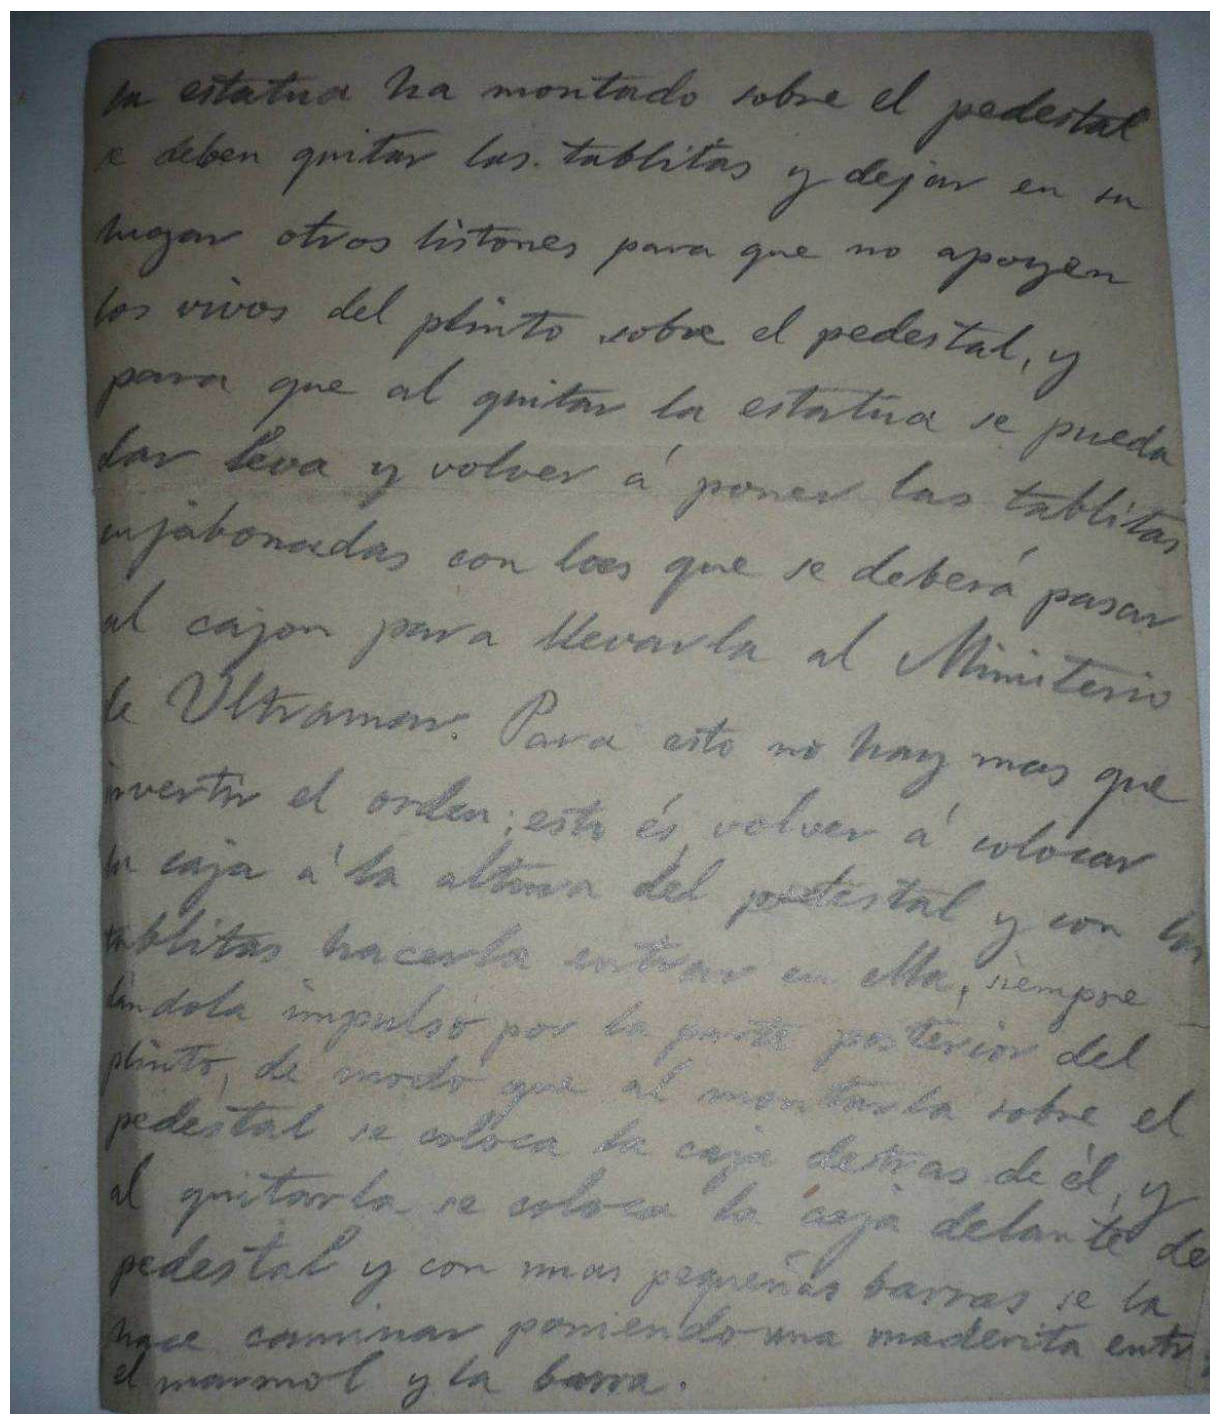 la estatua ha montado sobre el pedestal
se deben quitar las tablitas y dejar en su
lugar otros listones para que no apoyen
los vivos del plinto sobre el pedestal, y
para que al quitar la estatua se pueda
dar leva y volver á poner las tablitas
enjabonadas con las que se deberá pasar
al cajon para llevarla al Ministerio
de Ultramar. Para esto no hay mas que
invertir el orden; esto és, volver á colocar
la caja á la altura del pedestal y con las
tablitas hacerla entrar en ella, siempre
dándola impulso por la parte posterior del
plinto, de modo que al montarla sobre el
pedestal se coloca la caja detras de él, y
al quitarla se coloca la caja delante de
pedestal y con unas pequeñas barras se la
hace caminar poniendo una maderita entre
el marmol y la barra.